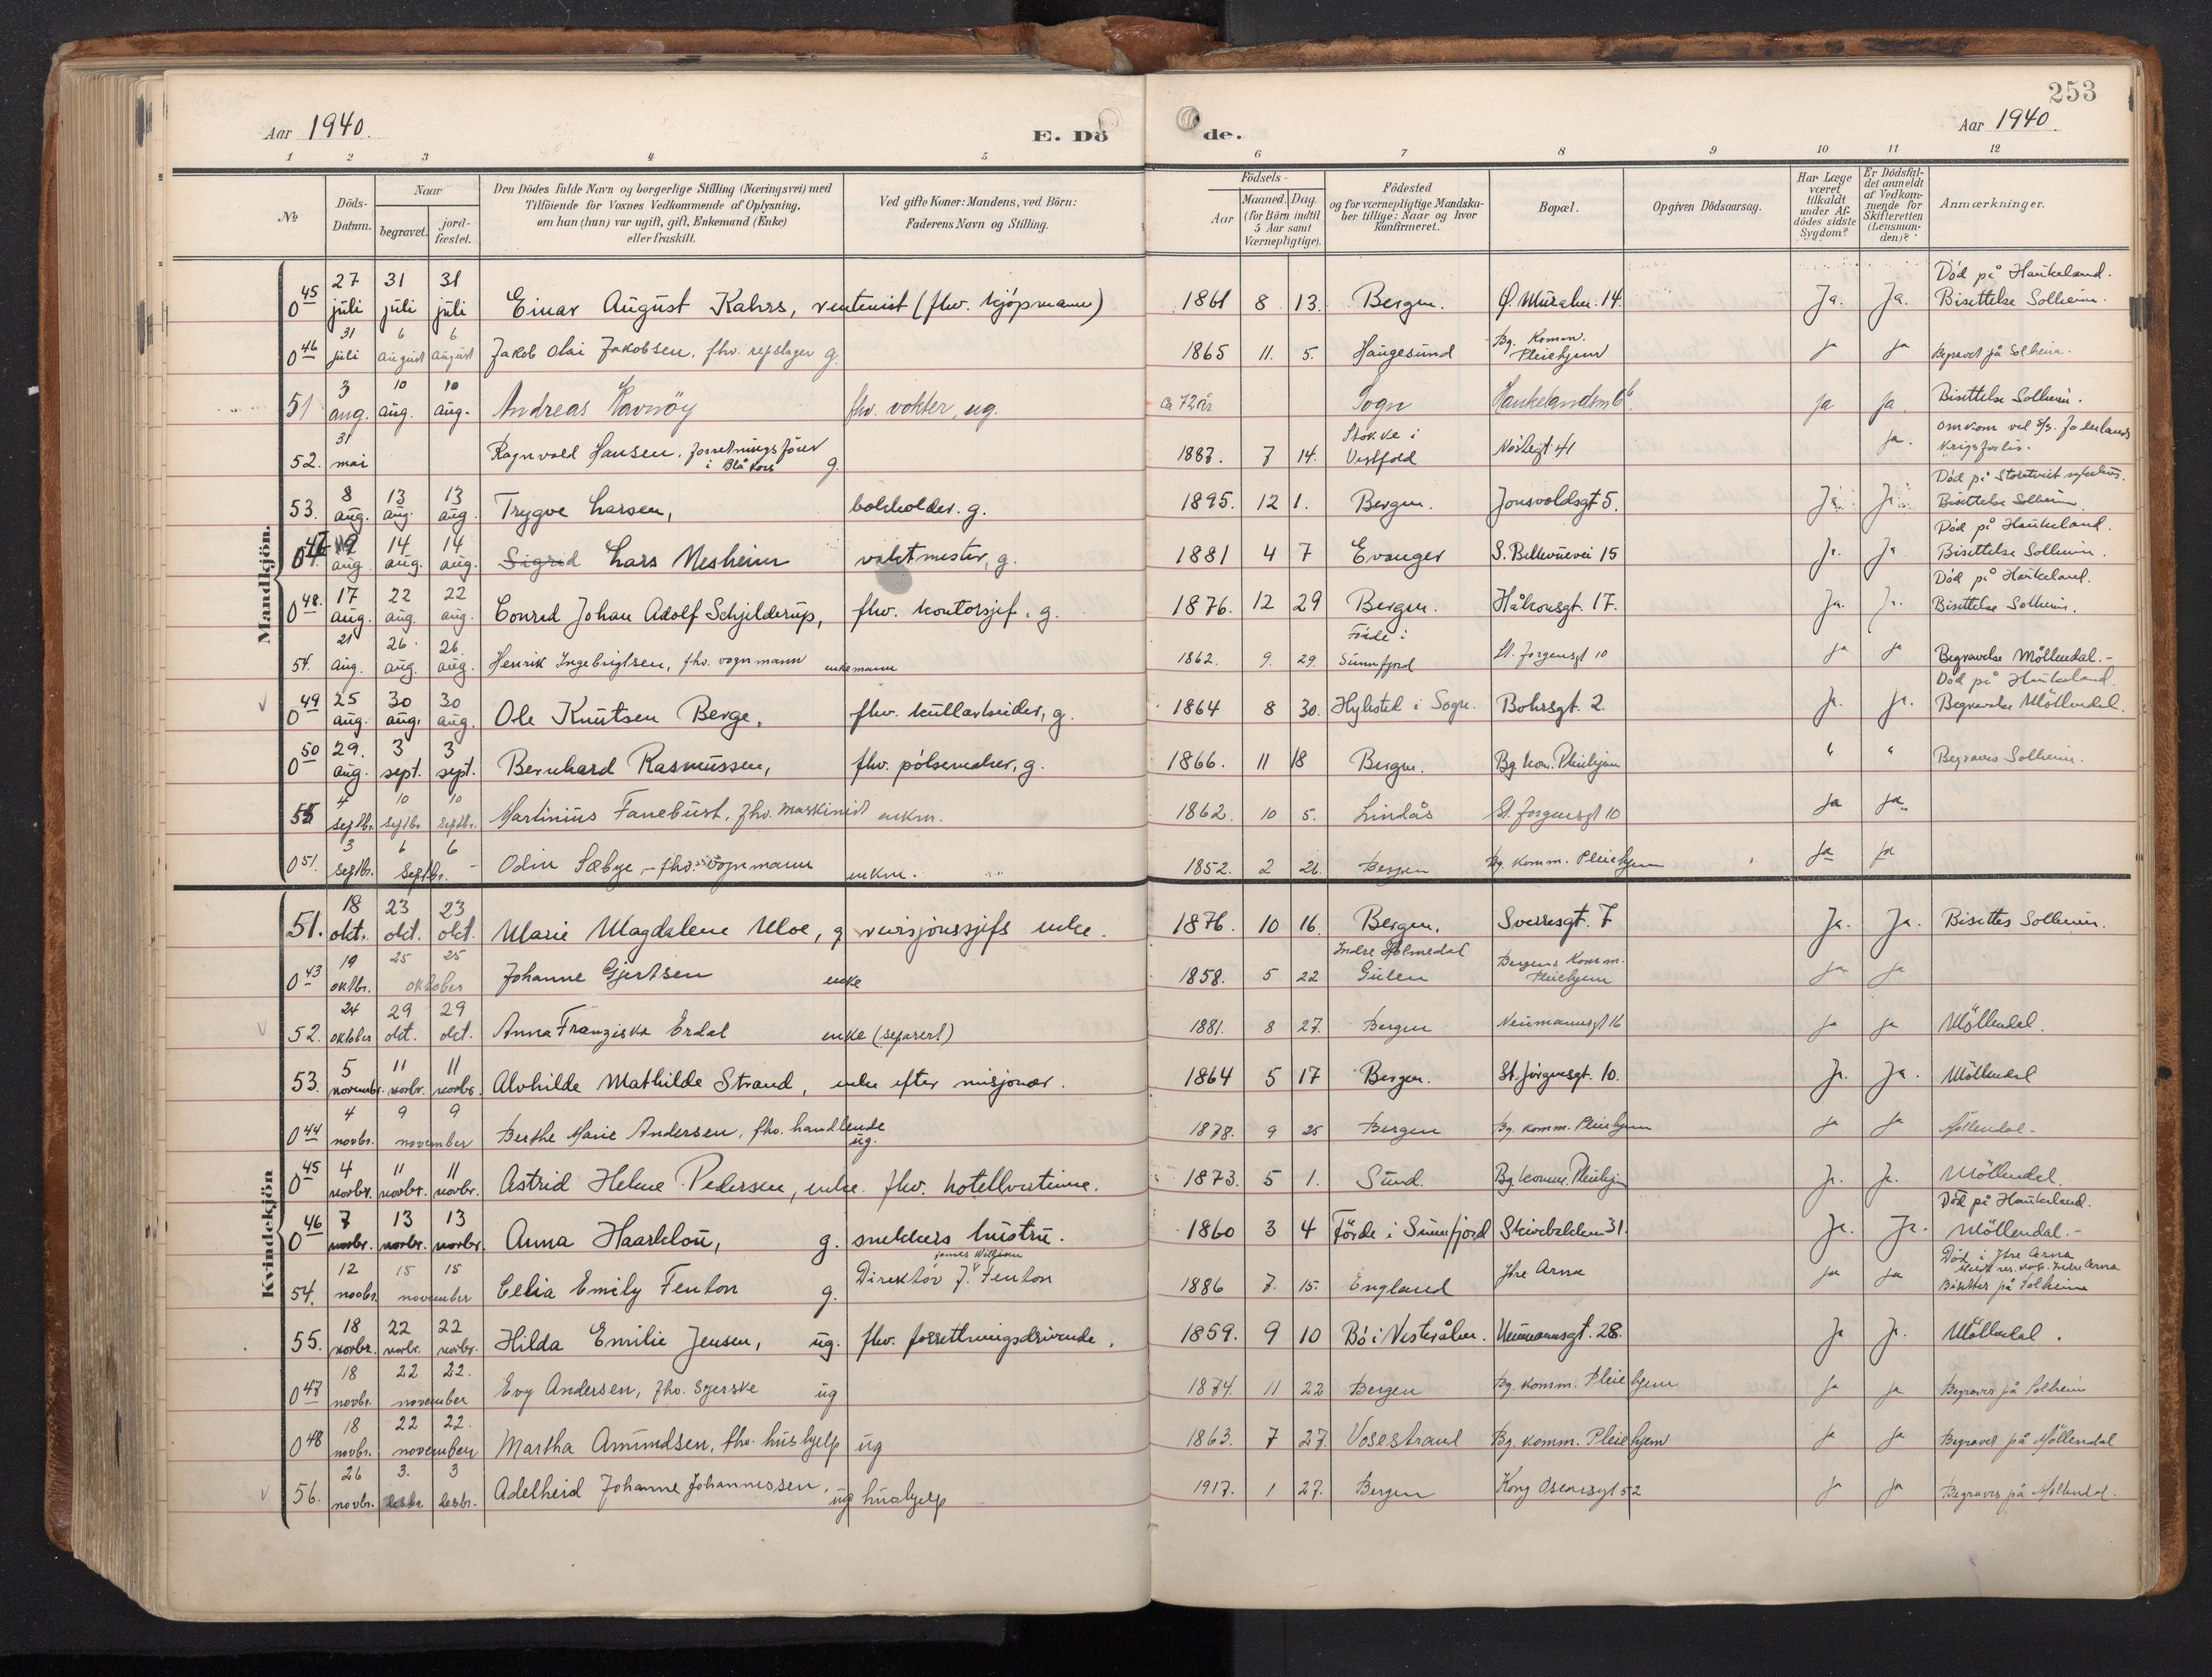 253
Aar 1940. E. Dö de. Aar 1940.
1 2 3 4 5 6 7 8 9 10 11 12
No
Döds-Datum.
Naar
begravet. jordfæstet.
Den Dödes fulde Navn og borgerlige Stilling (Næringsvei) med
Tilföiende for Voxnes Vedkommende af Oplysning,
om han (hun) var ugift, gift, Enkemand (Enke)
eller fraskilt.
Ved gifte Koner: Mandens, ved Börn:
Faderens Navn og Stilling.
Födsels-
Aar
Maaned. Dag.
(for Börn indtil
5 Aar samt
Værnepligtige).
Födested
og for værnepligtige Mandskaber tillige: Naar og hvor
konfirmeret.
Bopæl.
Opgiven Dödsaarsag.
Har Læge
været
tilkaldt
under Afdödes sidste
Sygdom?
Er Dödsfaldet anmeldt
af Vedkommende for
Skifteretten
(Lensmanden)?
Anmærkninger.
Mandkjön.
0 45 27 juli 31 juli 31 juli Einar August Kahrs, rentenist (fhv. kjöpmann) 1861 8 13. Bergen. Ø. Muralm. 14. Ja. Ja. Död på Haukeland. Bisettelse Solheim.
0 46 31 juli 6 august 6 august Jakob Olai Jakobsen, fhv. repslager g. 1865 11. 5. Haugesund Bg. Komm. Pleiehjem ja ja Begravet på Solheim.
51 3 aug. 10 aug. 10 aug. Andreas Ravnöy fhv. vokter, ug. ca 72 år Sogn Haukelandsv. 6b. ja ja. Bisettelse Solheim.
52. 31 mai Ragnvald Hansen. forretningsförer i Blå Kors g. 1887. 7 14. Stokke i Vestfold Nöstegt 41 ja. Omkom ved s/s. Faderlands krigsforlis.
53. 8 aug. 13 aug. 13 aug. Trygve Larsen, bokholder. g. 1895. 12 1. Bergen. Jonsvoldsgt 5. Ja. Ja. Död på Storetveit sykehus. Bisettelse Solheim
0 47 9 aug. 14 aug. 14 aug. Sigrid Lars Nesheim vaktmester, g. 1881 4 7 Evanger S. Bellevuevei 15 Ja. Ja Död på Haukeland. Bisettelse Solheim.
0 48. 17 aug. 22 aug. 22 aug. Conrad Johan Adolf Schjelderup, fhv. kontorsjef. g. 1876. 12 29 Bergen. Håkonsgt. 17. Ja. Ja. Död på Haukeland. Bisettelse Solheim.
54. 21 aug. 26. aug. 26. aug. Henrik Ingebrigtsen, fhv. vognmann enkemann 1862. 9. 29. Förde i Sunnfjord St. Jorgensgt 10 ja ja Begravelse Möllendal.-
0 49 25 aug. 30 aug. 30 aug. Ole Knutsen Berge, fhv. kullarbeider, g. 1864 8 30. Hyllestad i Sogn. Bohrsgt. 2. Ja. Ja. Död på Haukeland. Begravelse Möllendal.
0 50 29. aug. 3 sept. 3 sept. Bernhard Rasmussen, fhv. pölsemaker, g. 1866. 11 18 Bergen. Bg. kom. Pleiehjem " " Begraves Solheim.
55 4 septbr. 10 septbr. 10 septbr. Martinius Fanebust, fhv. maskinist enkm. 1862. 10 5. Lindås St. Jorgensgt 10 ja ja.
0 51. 3 septbr. 6 6 septbr. - Odin Sæbye, - fhv. vognmann enkm. 1852. 2 26. Bergen Bg. komm. Pleiehjem ja ja
Kvindekjön
51. 18 okt. 23 okt. 23 okt. Marie Magdalene Moe, g revisjonssjefs enke. 1876. 10 16. Bergen. Sverresgt. 7 Ja. Ja. Bisettes Solheim.
0 43 19 oktbr. 25 25 oktober Johanne Gjertsen enke 1858. 5 22 Indre Holmedal Gulen Bergens Komm. Pleiehjem ja ja
52. 24 oktober 29 okt. 29 okt. Anna Franziska Erdal enke (separert) 1881. 8 27. Bergen Neumannsgt 16 ja ja Möllendal.
53. 5 novembr. 11 novbr. 11 novbr. Alvhilde Mathilde Strand, enke efter misjonær. 1864 5 17 Bergen. St. Jörgensgt. 10. Ja. Ja. Möllendal
0 44 4 novbr. 9 9 november Berthe Marie Andersen, fhv. handlende ug. 1878. 9 25 Bergen Bg. komm. Pleiehjem ja ja Möllendal-
0 45 4 novbr. 11 novbr. 11 novbr. Astrid Helene Pedersen, enke. fhv. hotellvertinne. 1873. 5 1. Sund. Bg. komm. Pleiehjem Ja. Ja. Möllendal.
0 46 7 novbr. 13 novbr. 13 novbr. Anna Haarklou, g. snekkers hustru. 1860 3 4 Förde i Sunnfjord Skivebakken 31. Ja. Ja. Död på Haukeland. Möllendal.-
54. 12 novbr. 15 15 november Celia Emily Fenton g. Direktör J. James William Fenton 1886 7. 15. England Ytre Arna ja ja Död i Ytre Arna Bisettes på Solheim
55. 18 novbr. 22 novbr. 22 novbr. Hilda Emilie Jensen, ug. fhv. forretningsdrivende. 1859. 9 10 Bö i Vesterålen. Neumannsgt. 28. Ja Ja. Möllendal.
0 47 18 novbr. 22 22. november Evy Andersen, fhv. syerske ug 1874. 11 22 Bergen Bg. komm. Pleiehjem ja ja Begraves på Solheim
0 48 18 novbr. 22 22. november Martha Amundsen, fhv. hushjelp ug 1863. 7 27. Vosestrand Bg. komm. Pleiehjem ja ja Begravet på Möllendal
56. 26 novbr. 3. desbr. 3 desbr. Adelheid Johanne Johannessen, ug hushjelp 1917. 1 27. Bergen Kong Oscarsgt 52 ja ja Begraves på Möllendal.